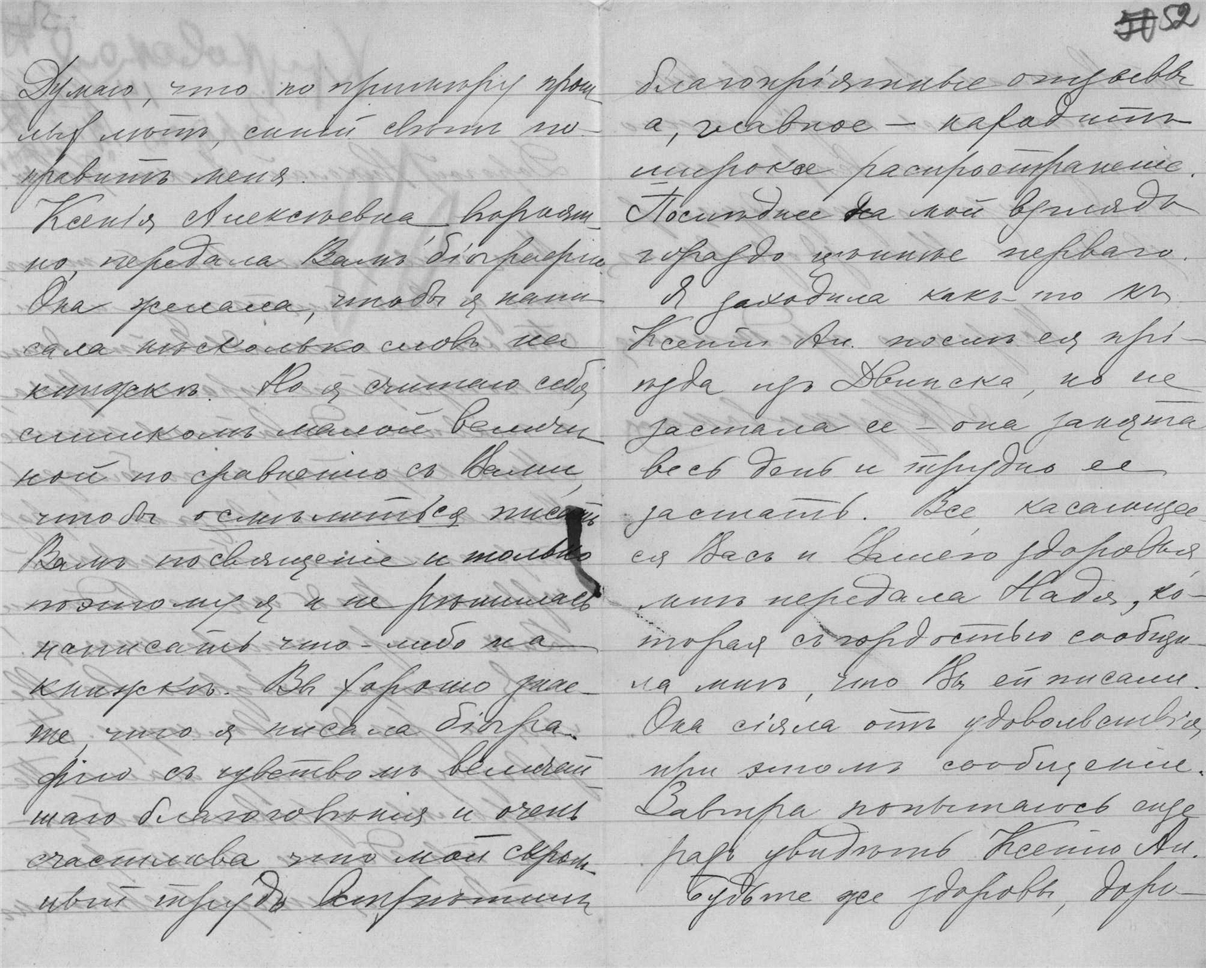 52
Думаю, что по примѣру прош
лыхъ лѣтъ, синій свѣтъ по-
правитъ меня.
Ксенія Алексѣевна вѣроят
но, передала Вамъ біографію
Она желала, чтобы я напи
сала нѣсколько словъ на
книжкѣ. Но я считаю себя
слишкомъ малой величи
ной по сравненію съ Вами,
чтобы осмѣлиться писать
Вамъ посвященіе и только
поэтому я и не рѣшилась
написать что-либо на
книжкѣ. Вы хорошо знае-
те, что я писала біогра-
фію съ чувствомъ величай
шаго благоговѣнія и очень
счастлива что мой скром
ный трудъ встрѣтилъ
благопріятные отзывы
а, главное – находитъ
широкое распространеніе.
Последнее на мой взглядъ
гораздо цѣннѣе перваго.
Я заходила какъ-то къ
Ксеніи Ал. послѣ ея прі-
ѣзда изъ Двинска, но не
застала ее – она занята
весь день и трудно ее
застать. Все касающее-
ся Васъ и Вашего здоровья
мнѣ передала Надя, ко-
торая съ гордостью сообщи-
ла мнѣ, что Вы ей писали.
Она сіяла отъ удовольствія
при этомъ сообщеніи.
Завтра попытаюсь еще
разъ увидѣть Ксенію Ал.
Будьте же здоровы, доро-